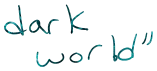 dark
world"